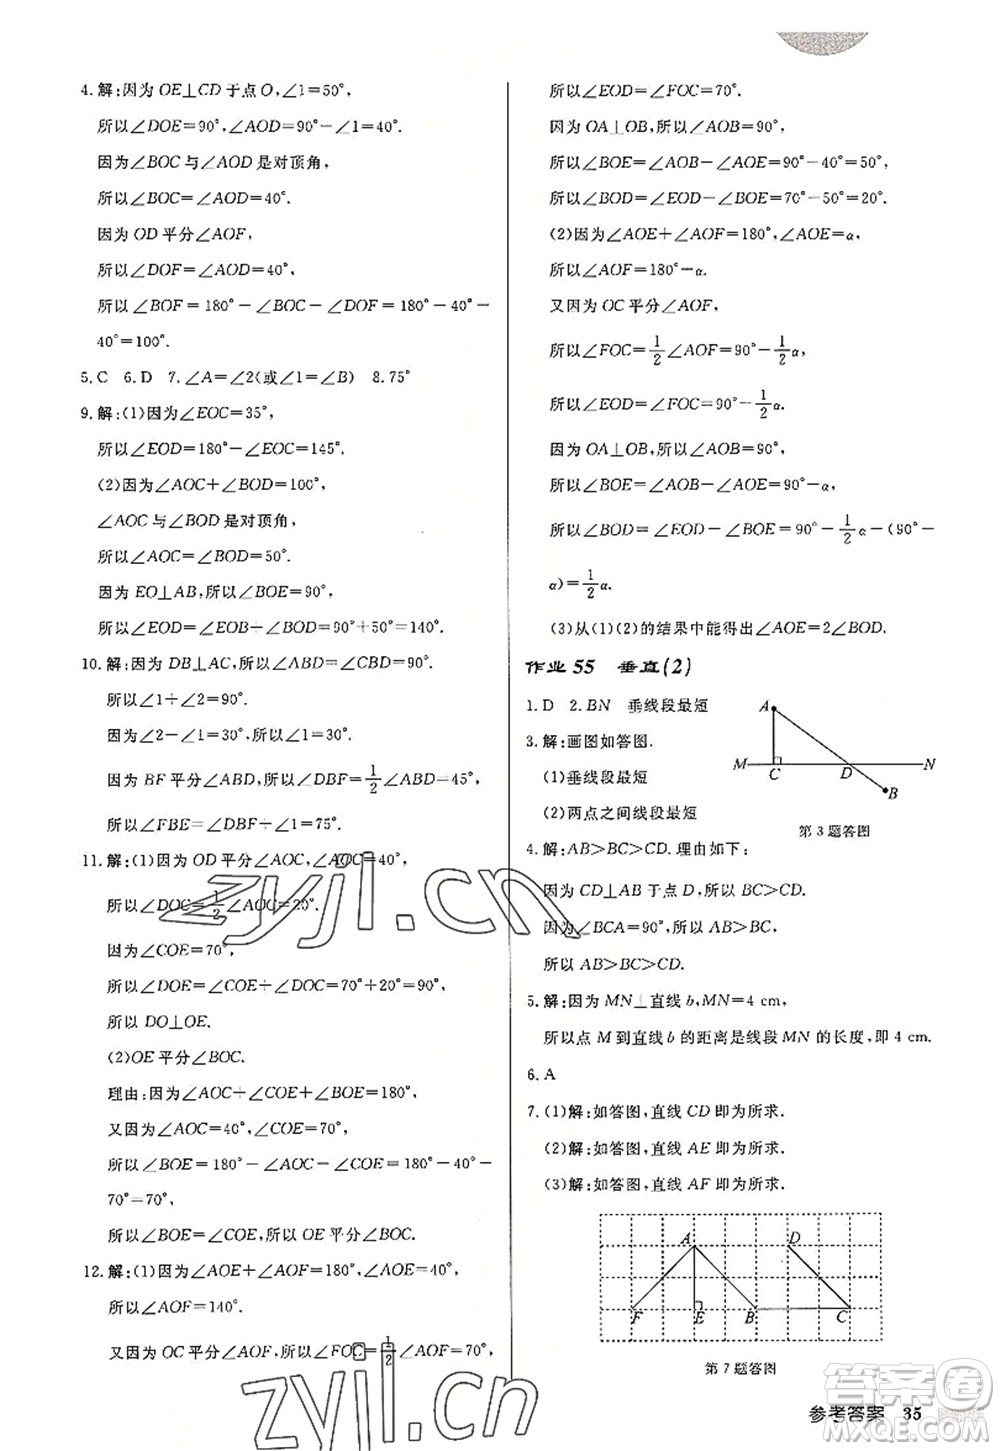 4.解:因为OE⊥CD于点O,∠1=50°,
所以∠DOE=90°,∠AOD=90°-∠1=40°.
因为∠BOC与∠AOD是对顶角,
所以∠BOC=∠AOD=40°.
因为OD平分∠AOF,
所以∠DOF=∠AOD=40°,
所以∠BOF=180°-∠BOC-∠DOF=180°-40°-
40°=100°.
5.C 6.D 7.∠A=∠2(或∠1=∠B) 8.75°
9.解:(1)因为∠EOC=35°,
所以∠EOD=180°-∠EOC=145°.
(2)因为∠AOC+∠BOD=100°,
∠AOC与∠BOD是对顶角,
所以∠AOC=∠BOD=50°.
因为EO⊥AB,所以∠BOE=90°,
所以∠EOD=∠EOB+∠BOD=90°+50°=140°.
10.解:因为DB⊥AC,所以∠ABD=∠CBD=90°.
所以∠1+∠2=90°.
因为∠2-∠1=30°,所以∠1=30°.
因为BF平分∠ABD,所以∠DBF=1/2∠ABD=45°,
所以∠FBE=∠DBF+∠1=75°.
11.解:(1)因为OD平分∠AOC,∠AOC=40°,
所以∠DOC=1/2∠AOC=20°.
因为∠COE=70°,
所以∠DOE=∠COE+∠DOC=70°+20°=90°,
所以DO⊥OE.
(2)OE平分∠BOC.
理由:因为∠AOC+∠COE+∠BOE=180°,
又因为∠AOC=40°,∠COE=70°,
所以∠BOE=180°-∠AOC-∠COE=180°-40°-
70°=70°,
所以∠BOE=∠COE,所以OE平分∠BOC.
12.解:(1)因为∠AOE+∠AOF=180°,∠AOE=40°,
所以∠AOF=140°.
又因为OC平分∠AOF,所以∠FOC=1/2∠AOF=70°,
所以∠EOD=∠FOC=70°.
因为OA⊥OB,所以∠AOB=90°,
所以∠BOE=∠AOB-∠AOE=90°-40°=50°,
所以∠BOD=∠EOD-∠BOE=70°-50°=20°.
(2)因为∠AOE+∠AOF=180°,∠AOE=α,
所以∠AOF=180°-α.
又因为OC平分∠AOF,
所以∠FOC=1/2∠AOF=90°-1/2α,
所以∠EOD=∠FOC=90°-1/2α.
因为OA⊥OB,所以∠AOB=90°,
所以∠BOE=∠AOB-∠AOE=90°-α,
所以∠BOD=∠EOD-∠BOE=90°-1/2α-(90°-
α)=1/2α.
(3)从(1)(2)的结果中能得出∠AOE=2∠BOD.
作业55 垂直(2)
1.D 2.BN 垂线段最短
3.解:画图如答图.
(1)垂线段最短
(2)两点之间线段最短
A
M C D N
B
第3题答图
4.解:AB>BC>CD.理由如下:
因为CD⊥AB于点D,所以BC>CD.
因为∠BCA=90°,所以AB>BC,
所以AB>BC>CD.
5.解:因为MN⊥直线b,MN=4 cm,
所以点M到直线b的距离是线段MN的长度,即4 cm.
6.A
7.(1)解:如答图,直线CD即为所求.
(2)解:如答图,直线AE即为所求.
(3)解:如答图,直线AF即为所求.
A D
F E B C
第7题答图
参考答案 35
zyjl.cn
zyjl.cn
答案圈